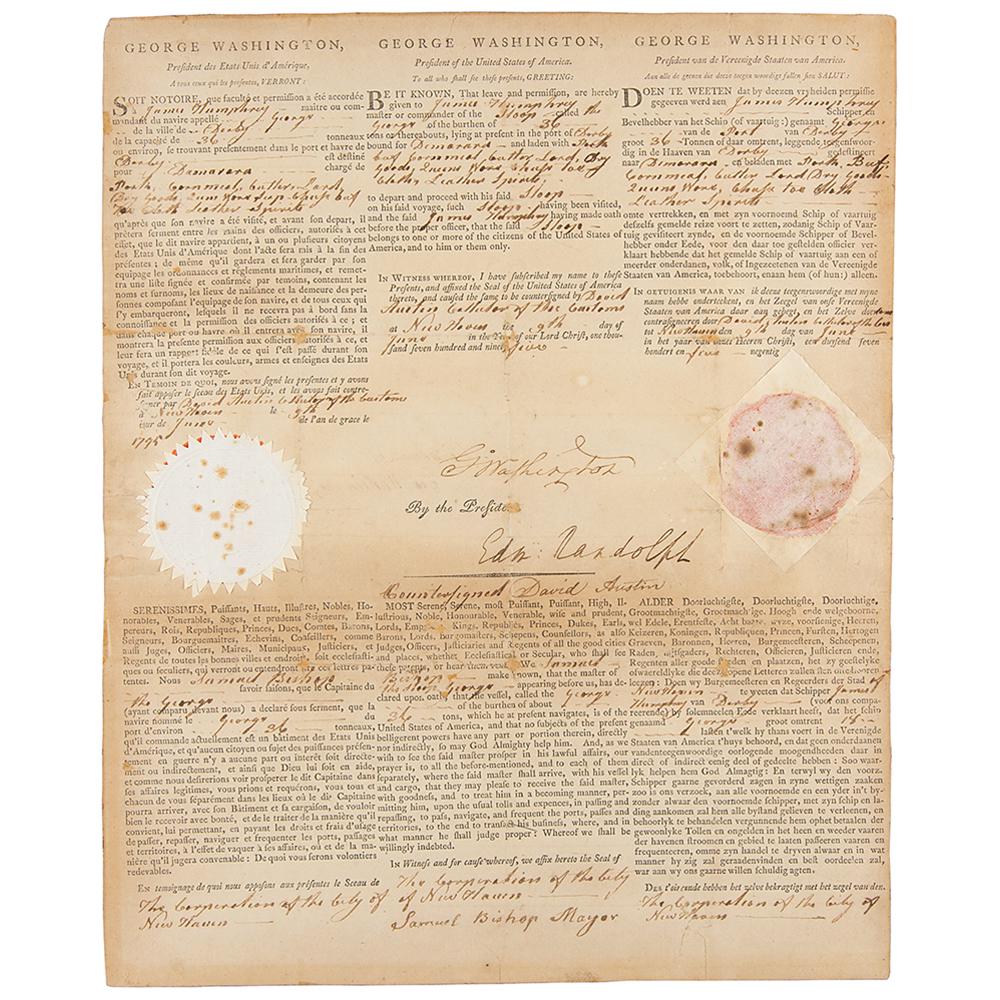 GEORGE WASHINGTON,
Président des Etats Unis d'Amérique,
A tous ceux qui les présentes, VERRONT:
SOIT NOTOIRE, que faculté et permission a été accordée
à James Humphrey maître ou com-
mandant du navire appellé George
de la ville de Derby
de la capacité de 36 tonneaux
ou environ, se trouvant presentement dans le port et havre de
Derby est destiné
pour Damarara chargé de
Pork, Cornmeal, Butter, Lard
Dry Goods, Quens Ware
Toe Cloth Leather Spirits
qu'après que son navire a été visité, et avant son départ, il
prêtera serment entre les mains des officiers, autorisés à cet
effet, que le dit navire appartient, à un ou plusieurs citoyens
des Etats Unis d'Amérique dont l'acte sera mis à la fin des
présentes; de même qu'il gardera et fera garder par son
équipage les ordonnances et réglemens maritimes, et remet-
tra une liste signée et confirmée par temoins, contenant les
noms et surnoms, les lieux de naissance et la demeure des per-
sonnes composant l'equipage de son navire, et de tous ceux qui
s'y embarqueront, lesquels il ne recevra pas à bord sans la
connoissance et la permission des officiers autorisés à ce; et
dans chaque port ou havre où il entrera avec son navire, il
montrera la présente permission aux officiers autorisés à ce, et
leur fera un rapport fidele de ce qui s'est passé durant son
voyage, et il portera les couleurs, armes et enseignes des Etats
Unis durant son dit voyage.
EN TEMOIN DE QUOI, nous avons signé les presentes et y avons
fait apposer le sceau des Etats Unis, et les avons fait contre-
signer par David Austin Collector of the Customs
à New Haven le 9th
jour de June de l'an de grace le
1795
GEORGE WASHINGTON,
President of the United States of America.
To all who shall see these presents, GREETING:
BE IT KNOWN, That leave and permission, are hereby
given to James Humphrey
master or commander of the Sloop called the
George of the burthen of 36
tons or thereabouts, lying at present in the port of Derby
bound for Demarara and laden with Pork
Beef Cornmeal, Butter, Lard, Dry
Goods, Quens Ware, Toe
Cloth, Leather Spirits,
to depart and proceed with his said Sloop
on his said voyage, such Sloop having been visited,
and the said James Humphrey having made oath
before the proper officer, that the said Sloop
belongs to one or more of the citizens of the United States of
America, and to him or them only.
IN WITNESS WHEREOF, I have subscribed my name to these
Presents, and affixed the Seal of the United States of America
thereto, and caused the same to be countersigned by David
Austin Collector of the Customs
at New Haven the 9th day of
June in the Year of our Lord Christ, one thou-
sand seven hundred and ninety five
GEORGE WASHINGTON,
President van de Vereenigde Staaten van America.
Aan alle de geenen die deeze tegenwoordige sullen sien SALUT:
DOEN TE WEETEN dat by deezen vryheiden permissie
gegeeven werd aen James Humphrey
Schipper en
Bevelhebber van het Schip (of vaartuig:) genaamt George
van de Port van Derby
groot 36 Tonnen of daar omtrent, leggende tegenswoor-
dig in de Haaven van Derby gedestineert
naar Damarara en beladen met Pork, Beef
Cornmeal, Butter Lard Dry Goods
Quens Ware, Toe Cloth
Leather Spirits
omte vertrekken, en met zyn voornoemd Schip of vaartuig
deszelfs gemelde reize voort te zetten, zodanig Schip of Vaar-
tuig gevisiteert zynde, en de voornoemde Schipper of Bevel-
hebber onder Eede, voor den daar toe gestelden officier ver-
klaart hebbende dat het gemelde Schip of vaartuig aan een of
meerder onderdanen, volk, of Ingezeetenen van de Vereenigde
Staaten van America, toebehoort, enaan hem (of hun:) alleen.
IN GETUIGENIS WAAR VAN ik deeze tegenwoordige met myne
naem hebbe onderteekent, en het Zeegel van onse Vereenigde
Staaten van America daar aan gehegt, en het Zelve doen
contrasigneeren door David Austin Collector of the Customs
tot New Haven den 9th dag van June
in het jaar van onzes Heeren Christi, een duysend seven
hondert en five negentig
G Washington
By the Preside
Edm: Randolph
Countersigned David Austin
SERENISSIMES, Puissants, Hauts, Illustres, Nobles, Ho-
norables, Venerables, Sages, et prudents Seigneurs, Em-
pereurs, Rois, Republiques, Princes, Ducs, Comtes, Barons,
Seigneurs, Bourguemaitres, Echevins, Conseillers, comme
aussi Juges, Officiers, Maires, Municipaux, Justiciers, et
Regents de toutes les bonnes villes et endroits, soit ecclesiasti-
ques ou seculiers, qui verront ou entendront ces lettres pa-
tentes. Nous Samuel Bishop
savoir faisons, que le Capitaine du
the George
(ayant comparu devant nous) a déclaré sous serment, que la
navire nommé le George du
port d'environ 36 tonneaux,
qu'il commande actuellement est un bâtiment des Etats Unis
d'Amérique, et qu'aucun citoyen ou sujet des puissances présen-
tement en guerre n'y a aucun part ou intérêt soit directe-
ment ou indirectement, et ainsi que Dieu lui soit en aide,
et comme nous desirerions voir prosperer le dit Capitaine dans
ses affaires legitimes, vous prions et requérons, vous tous et
chacun de vous séparément dans les lieux où le dit Capitaine
pourra arriver, avec son Bâtiment et sa cargaison, de vouloir
bien le recevoir avec bonté, et de le traiter de la manière qu'il
convient, lui permettant, en payant les droits et frais d'usage
de passer, repasser, naviguer et frequenter les ports, passages
et territoires, à l'effet de vaquer à ses affaires, où et de la ma-
nière qu'il jugera convenable: De quoi vous serons volontiers
redevables.
En temoignage de quoi nous apposons aux présentes le Sceau de
The Corporation of the City of
New Haven
MOST Serene, Serene, most Puissant, Puissant, High, Il-
lustrious, Noble, Honourable, Venerable, wise and prudent,
Lords, Emperors, Kings, Republics, Princes, Dukes, Earls,
Barons, Lords, Burgomasters, Schepens, Counsellors, as also
Judges, Officers, Justiciaries and Regents of all the good cities
and places, whether Ecclesiastical or Secular, who shall see
these patents, or hear them read. We Samuel
Bishop make known, that the master of
the sloop George appearing before us, has de-
clared upon oath, that the vessel, called the George
of the burthen of about
36 tons, which he at present navigates, is of the
United States of America, and that no subjects of the present
belligerent powers have any part or portion therein, directly
nor indirectly, so may God Almighty help him. And, as we
wish to see the said master prosper in his lawful affairs, our
prayer is, to all the before-mentioned, and to each of them
separately, where the said master shall arrive, with his vessel
and cargo, that they may please to receive the said master,
with goodness, and to treat him in a becoming manner, per-
mitting him, upon the usual tolls and expences, in passing and
repassing, to pass, navigate, and frequent the ports, passes and
territories, to the end to transact his business, where, and in
what manner he shall judge proper: Whereof we shall be
willingly indebted.
In Witness and for cause whereof, we affix hereto the Seal of
The Corporation of the City
of New Haven
Samuel Bishop Mayor
ALDER Doorluchtigste, Doorluchtige, Doorluchtige,
Grootmachtigste, Grootmachtige. Hoogh ende welgeboorne,
wel Edele, Erentfeste, Acht baare, wyze, voorsienige, Heeren,
Keizeren, Koningen, Republiquen, Prncen, Fursten, Hertogen
Graeven, Baronnen, Heeren, Burgemeesteren, Scheepenen,
Raden, Rechteren, Officieren, Justicieren ende,
Regenten aller goede steeden en plaatzen, het zy geestelyke
ofwaereldlyke die deeze opene Letteren zullen sien ofte hooren
leezen: Doen wy Burgemeesteren en Regeerders der Stad of
New Haven te weeten dat Schipper James
Humphrey van Derby (voor ons compa-
reerende) by solemneelen Eede verklaart heeft, dat het schip
genaamd George groot omtrent 18
lasten t'welk hy thans voert in de Vereenigde
Staaten van America t'huys behoord, en dat geen onderdanen
vandentegenwoordige oorlogende moogendheden daar in
direct of indirect eenig deel of gedeelte hebben: Soo waar-
lyk helpen hem God Almagtig: En terwyl wy den voorz.
Schipper gaarne gevordert zagen in zyne wettigen zaaken
zoo is ons verzoek, aan alle voornoemde en een yder in't by-
zonder alwaar den voornoemde schipper, met zyn schip en la-
ding aankomen zal hem alle bystand gelieven te verleenen, en
behoorlyk te behandelen vergunnende hem ophet betalen der
gewoonlyke Tollen en ongelden in het heen en weeder vaaren
der havenen stroomen en gebied te laaten passeeren vaaren en
frequenteeren, omme zyn handel te dryven alwaar en in wat
manner hy zig zal geraadenvinden en best oordeelen zal,
war aan wy ons gaarne willen schuldig agten.
Des t'oirconde hebben het zelve bekragtigt met het zegel van den.
The Corporation of the City of
New Haven